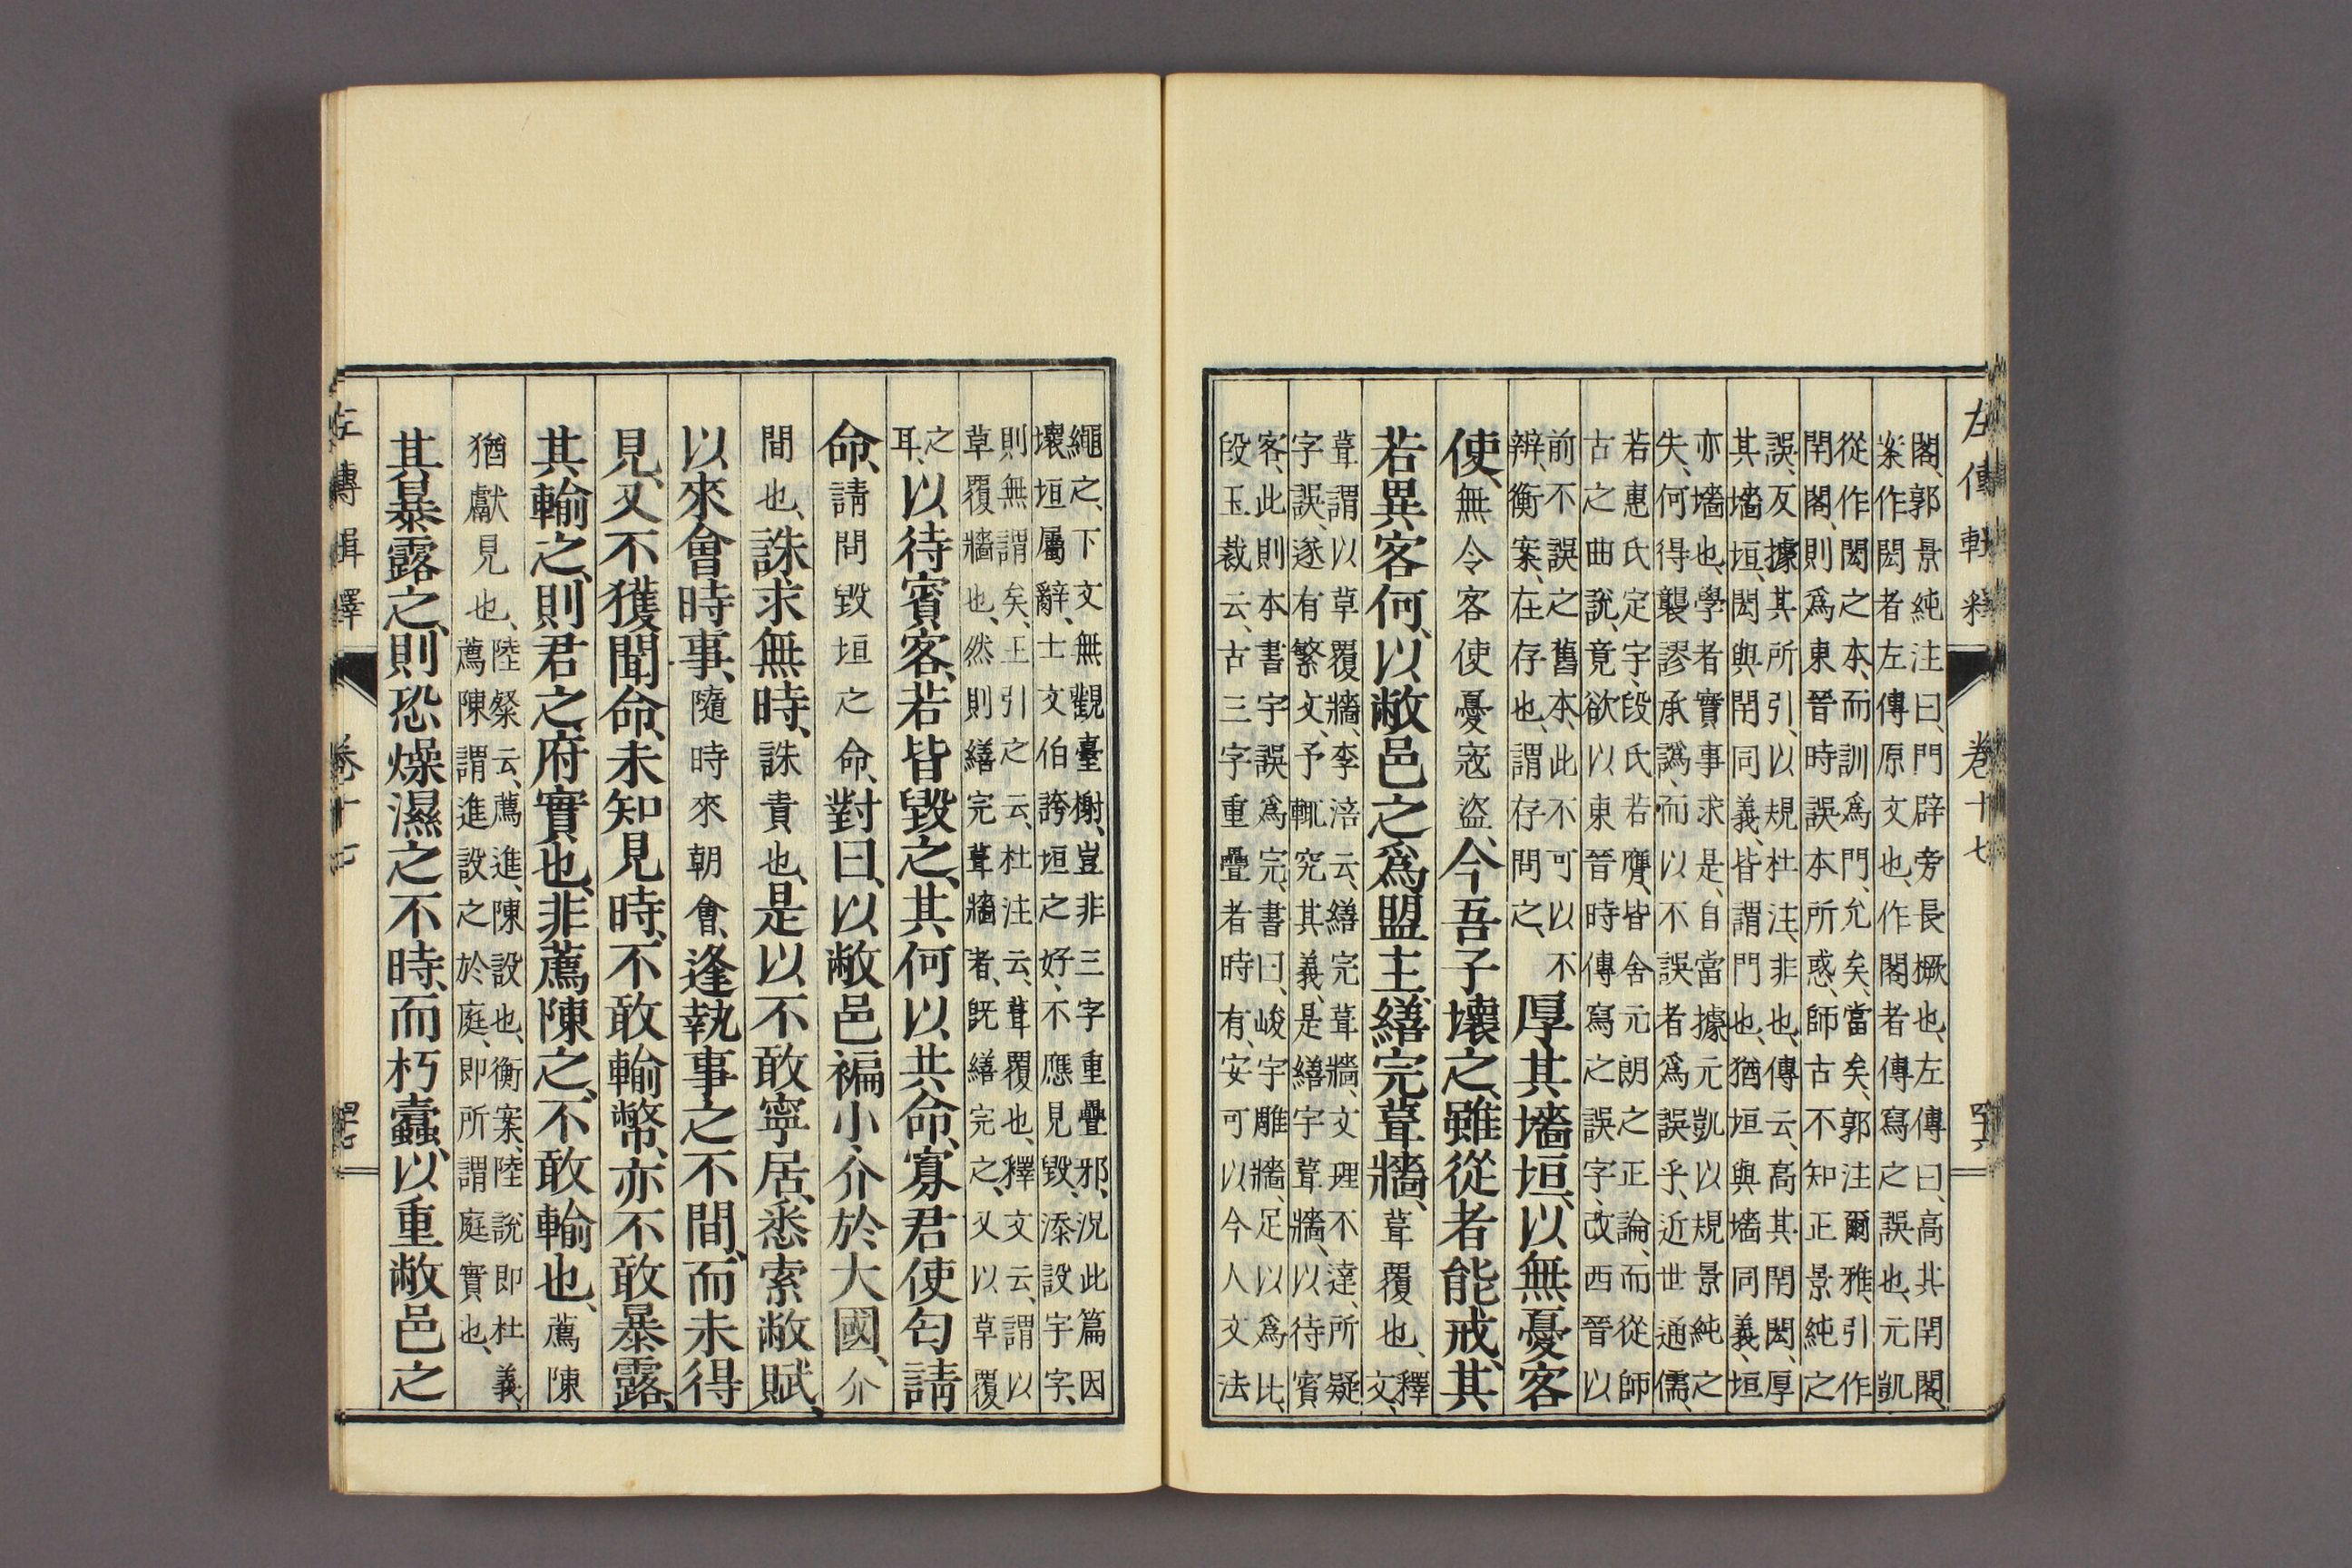 左傳輯釋 卷十七 四十六
閣、郭景純注曰、門辟旁長橛也、左傳曰、高其閈閣、
案作閎者左傳原文也、作閣者傳寫之誤也、元凱
從作閎之本、而訓爲門、允矣、當矣、郭注爾雅、引作
閈閣、則爲東晉時誤本所惑、師古不知正景純之
誤、反據其所引、以規杜注、非也、傳云、高其閈閎、厚
其墻垣、閎與閈同義、皆謂門也、猶垣與墻同義、垣
亦墻也、學者實事求是、自當據元凱以規景純之
失、何得襲謬承譌、而以不誤者爲誤乎、近世通儒、
若惠氏定宇、段氏若膺、皆舍元朗之正論、而從師
古之曲說、竟欲以東晉時傳寫之誤字、改西晉以
前不誤之舊本、此不可以不
辨、衡案、在存也、謂存問之、
厚其墻垣、以無憂客
使、無令客使憂寇盜、今吾子壞之、雖從者能戒、其
若異客何、以敝邑之爲盟主、繕完葺牆、葺覆也、釋文、
葺謂以草覆牆、李涪云、繕完葺牆、文理不達、所疑
字誤、遂有繁文、予輒究其義、是繕宇葺牆、以待賓
客、此則本書宇誤爲完、書曰、峻宇雕牆、足以爲比、
段玉裁云、古三字重疊者時有、安可以今人文法
繩之、下文無觀臺榭、豈非三字重疊邪、況此篇因
壞垣屬辭、士文伯誇垣之好、不應見毀、添設宇字、
則無謂矣、王引之云、杜注云、葺覆也、釋文云、謂以
草覆牆也、然則繕完葺牆者、既繕完之、又以草覆
之耳、以待賓客、若皆毀之、其何以共命、寡君使匄請
命、請問毀垣之命、對曰、以敝邑褊小、介於大國、介
間也、誅求無時、誅責也、是以不敢寧居、悉索敝賦、
以來會時事、隨時來朝會、逢執事之不間、而未得
見、又不獲聞命、未知見時、不敢輸幣、亦不敢暴露、
其輸之、則君之府實也、非薦陳之、不敢輸也、薦陳
猶獻見也、陸粲云、薦進、陳設也、衡案、陸說即杜義、
薦陳謂進設之於庭、即所謂庭實也、
其暴露之、則恐燥濕之不時、而朽蠹、以重敝邑之
左傳輯釋 卷十七 四十七